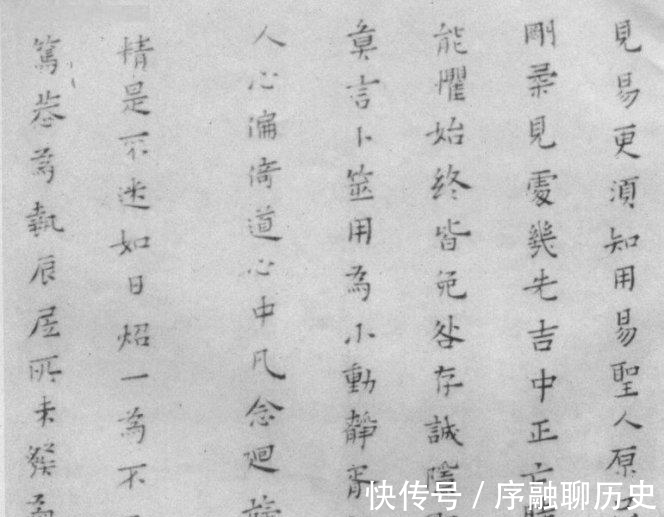 見易更須知用易聖人原
剛柔見處幾先吉中正
能懼始終皆免咎存誠
莫言卜筮用為小動靜
人心偏倚道心中凡念迴
精是不迷如日炤一為不
篤恭為執辰居所未發為
快传号 / 序融聊历史